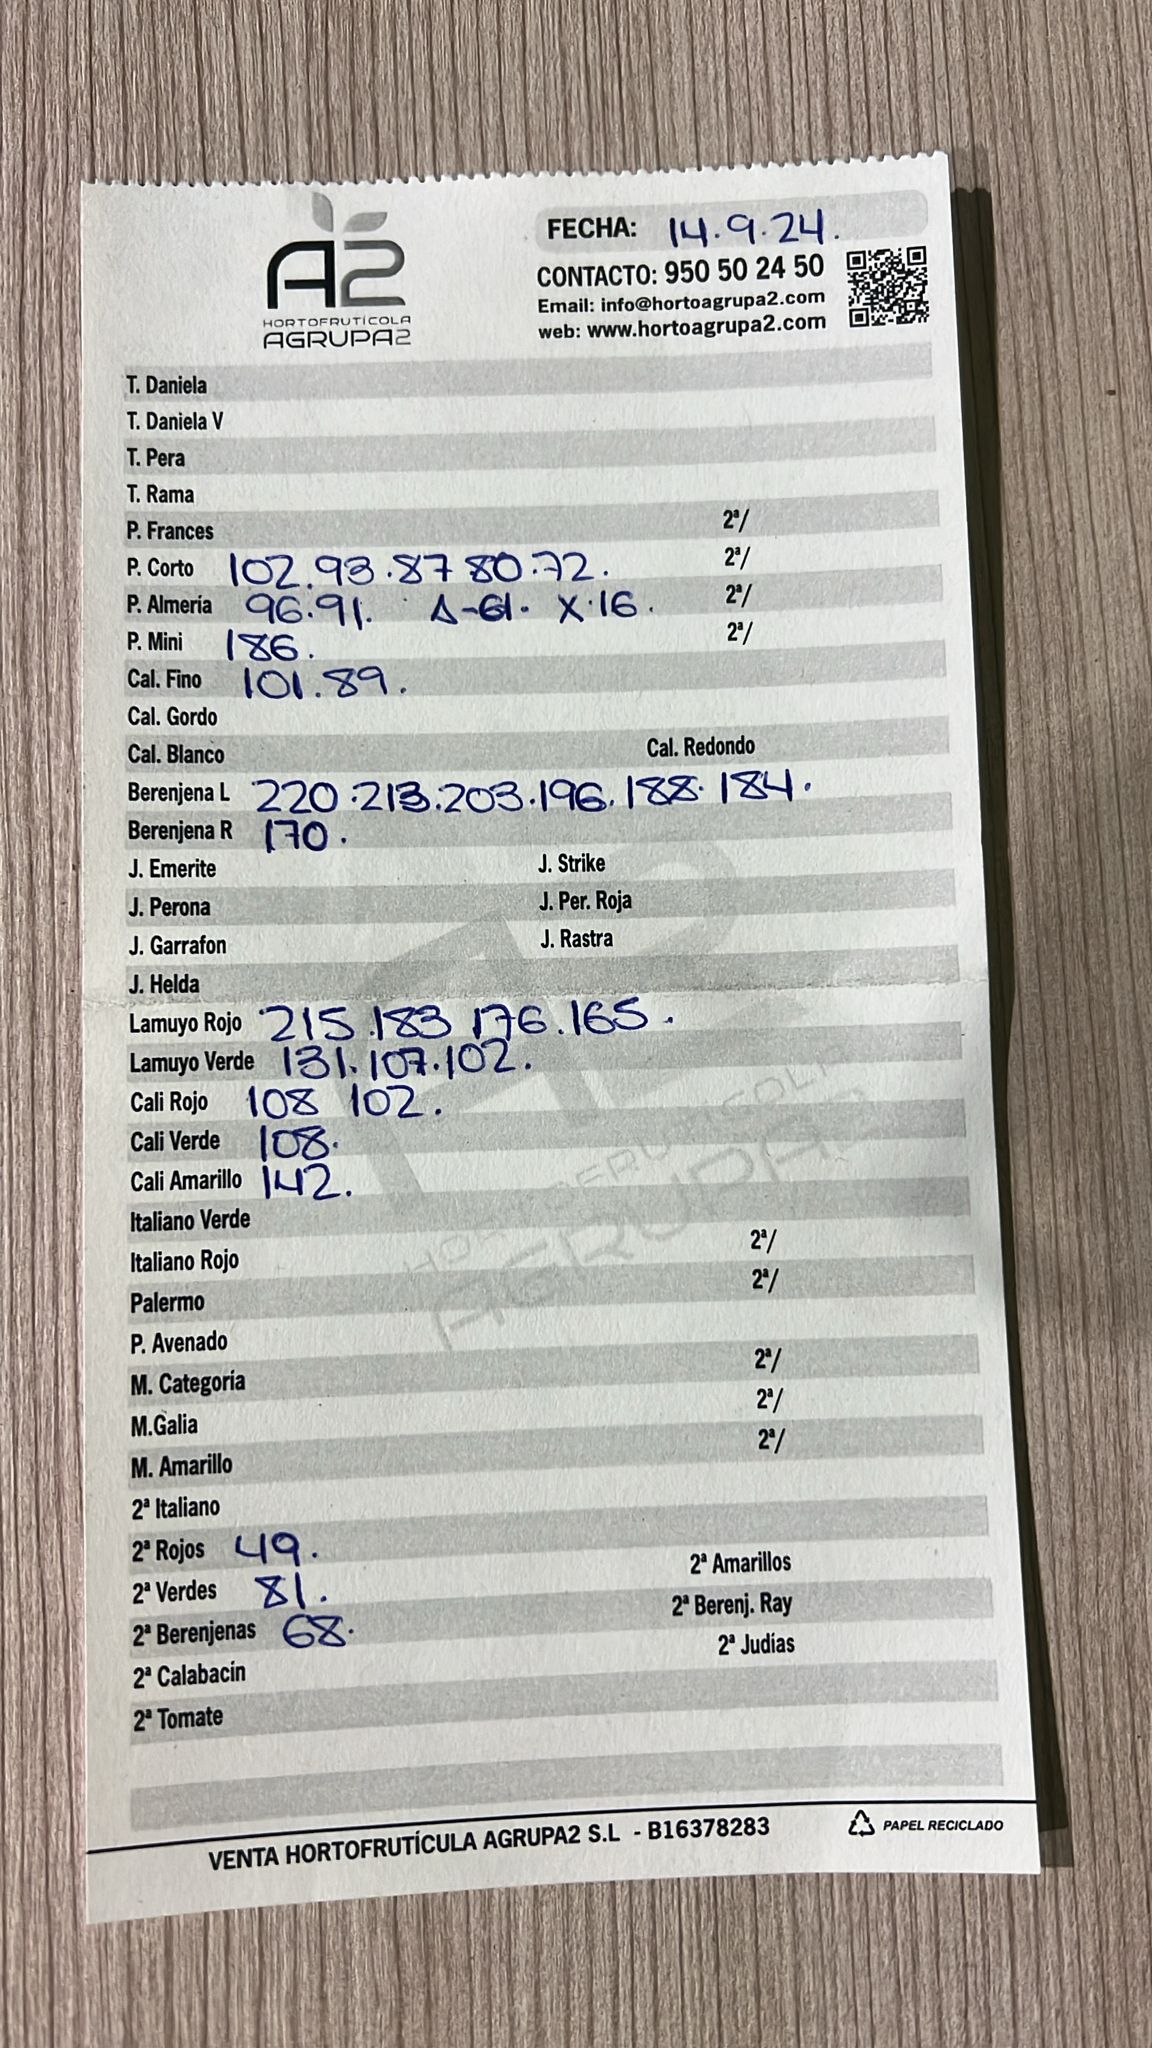 A2
HORTOFRUTÍCOLA
AGRUPA2
FECHA: 14.9.24.
CONTACTO: 950 50 24 50
Email: info@hortoagrupa2.com
web: www.hortoagrupa2.com
T. Daniela
T. Daniela V
T. Pera
T. Rama
P. Frances 2ª/
P. Corto 102.93.87 80.72. 2ª/
P. Almería 96.91. Δ-61. X.16. 2ª/
P. Mini 186. 2ª/
Cal. Fino 101.89.
Cal. Gordo
Cal. Blanco Cal. Redondo
Berenjena L 220.213.203.196.188.184.
Berenjena R 170.
J. Emerite J. Strike
J. Perona J. Per. Roja
J. Garrafon J. Rastra
J. Helda
Lamuyo Rojo 215.183 176.165.
Lamuyo Verde 131.107.102.
Cali Rojo 108 102.
Cali Verde 108.
Cali Amarillo 142.
Italiano Verde
Italiano Rojo 2ª/
Palermo 2ª/
P. Avenado
M. Categoría 2ª/
M.Galia 2ª/
M. Amarillo 2ª/
2ª Italiano
2ª Rojos 49.
2ª Verdes 81. 2ª Amarillos
2ª Berenjenas 68. 2ª Berenj. Ray
2ª Calabacín 2ª Judías
2ª Tomate
VENTA HORTOFRUTÍCULA AGRUPA2 S.L - B16378283 PAPEL RECICLADO